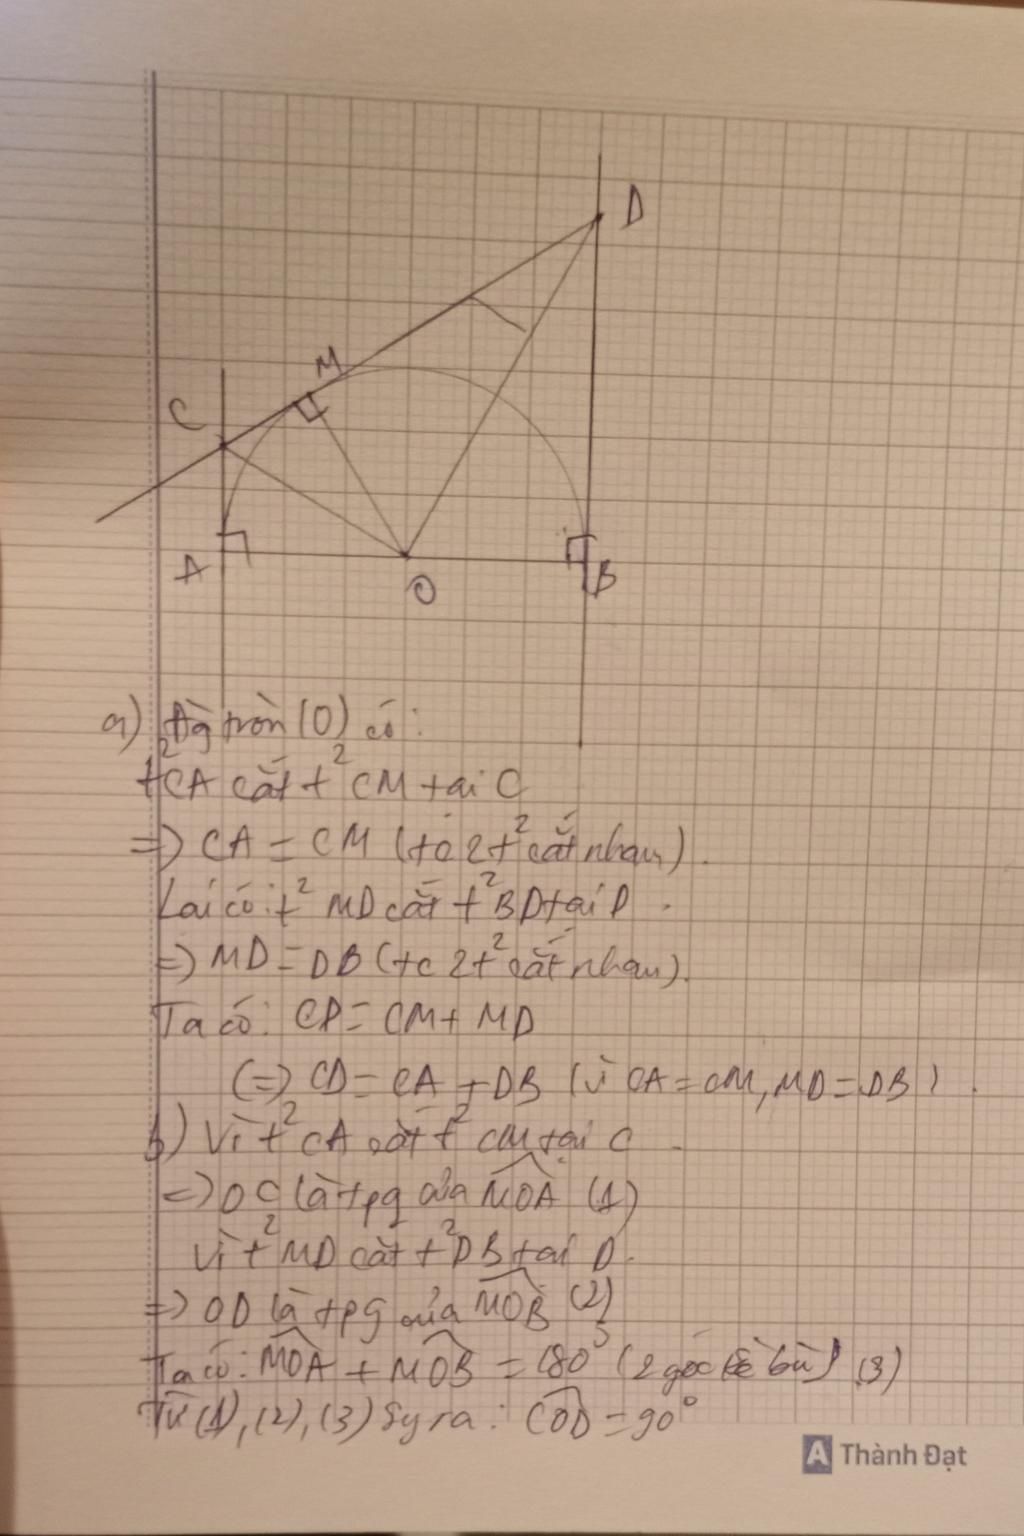 D
M
C
A
O
B
a) Đg tròn (O) có:
t² CA cắt t² CM tại C
=> CA = CM (tc 2 t² cắt nhau).
Lại có: t² MD cắt t² BD tại D.
=> MD = DB (tc 2 t² cắt nhau).
Ta có: CD = CM + MD
(=) CD = CA + DB (vì CA = CM, MD = DB).
b) Vì t² CA cắt t² CM tại C.
=> OC là tpg của MOA (1)
Vì t² MD cắt t² DB tại D.
=> OD là tpg của MOB (2)
Ta có: MOA + MOB = 180° (2 góc kề bù) (3)
Từ (1), (2), (3) Sy ra: COD = 90°
A Thành Đạt